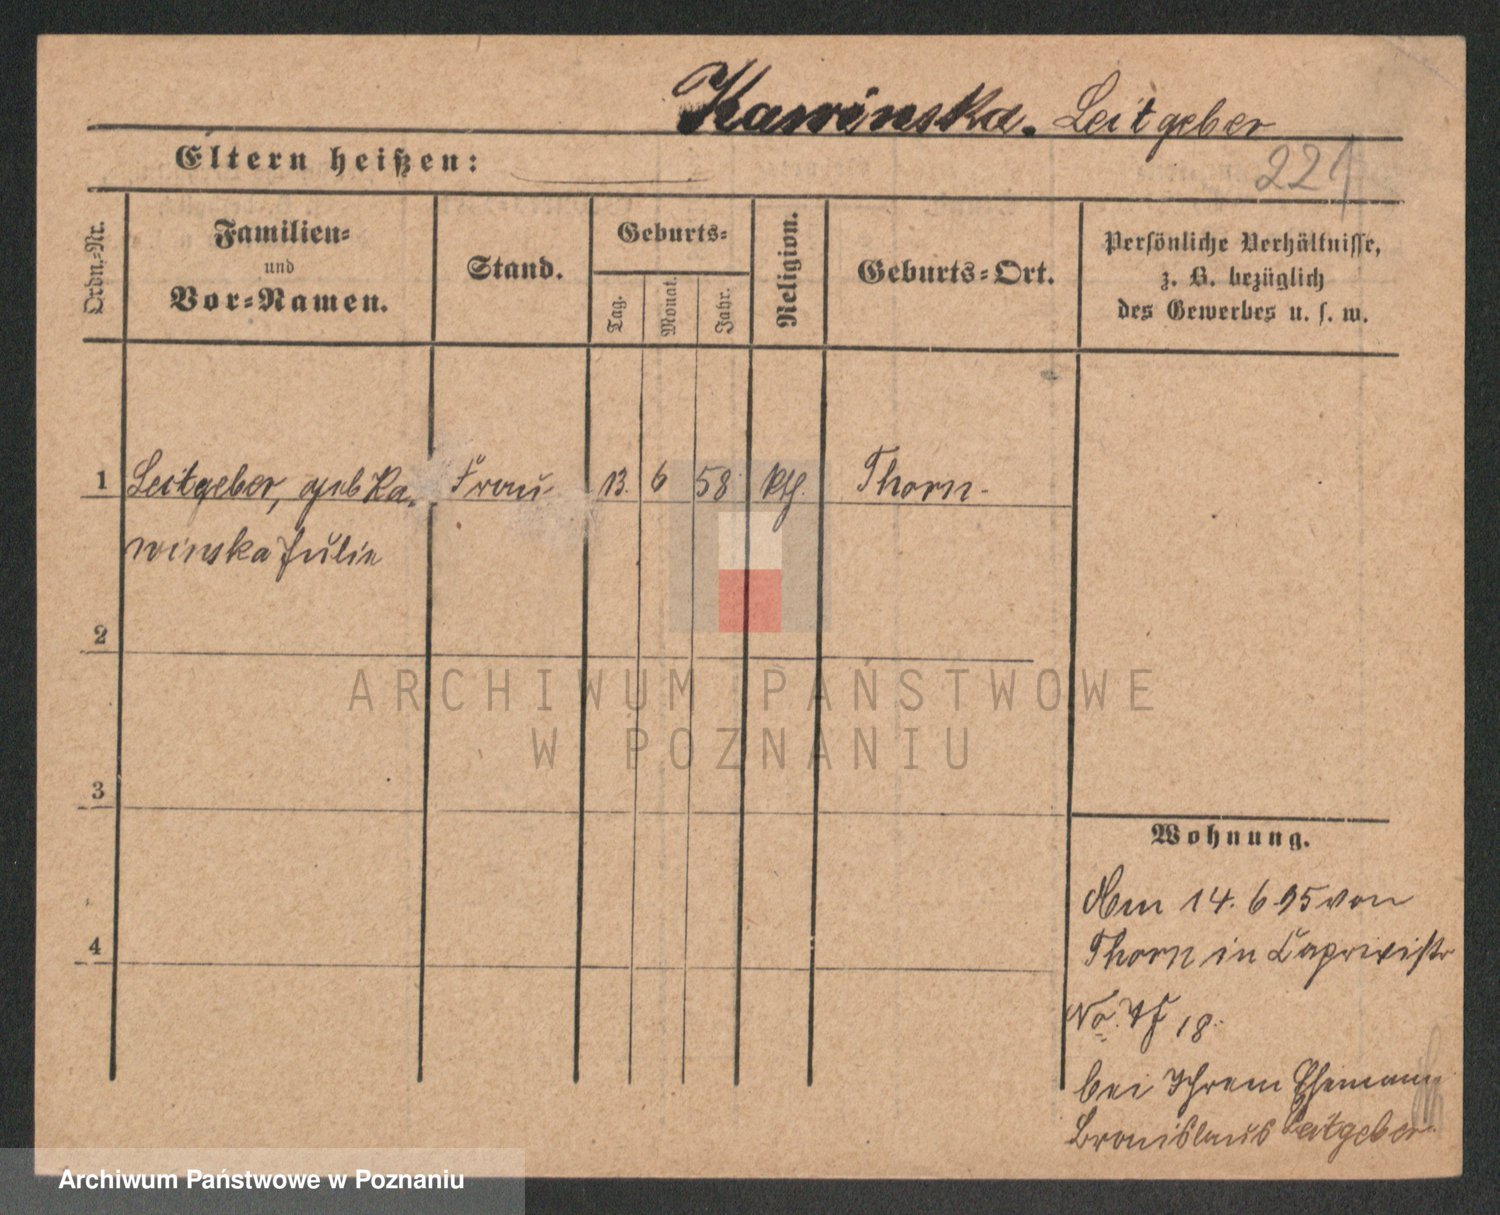 Kawinska. Leitgeber
Eltern heißen:
221
Ordn.-Nr.
Familien-
und
Vor-Namen.
Stand.
Geburts-
Tag.
Monat.
Jahr.
Religion.
Geburts-Ort.
Persönliche Verhältnisse,
z. B. bezüglich
des Gewerbes u. s. w.
1 Leitgeber, geb Ka- Frau 13. 6 58 kth. Thorn.
winska Julie
2
ARCHIWUM PAŃSTWOWE
W POZNANIU
3
Wohnung.
Am 14. 6 95 von
4
Thorn in Caprivistr
No. 18.
bei Ihrem Ehemann
Bronislaus Leitgeber.
Archiwum Państwowe w Poznaniu